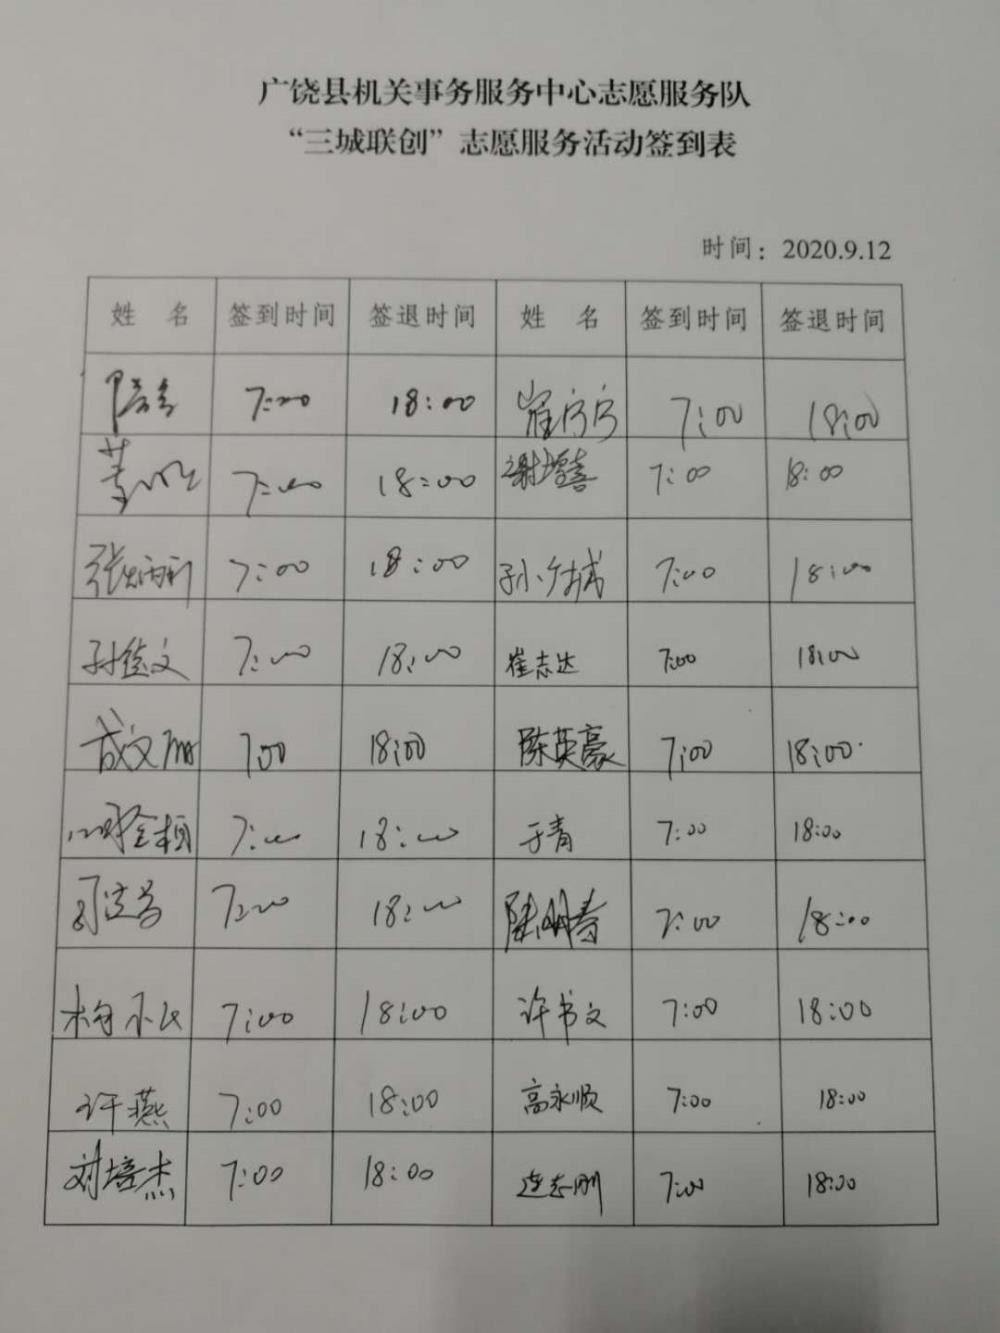 广饶县机关事务服务中心志愿服务队
“三城联创”志愿服务活动签到表
时间：2020.9.12
姓 名 签到时间 签退时间 姓 名 签到时间 签退时间
7:00 18:00 崔宁宁 7:00 18:00
7:00 18:00 谢增喜 7:00 18:00
7:00 18:00 孙广城 7:00 18:00
孙德文 7:00 18:00 崔志达 7:00 18:00
成文丽 7:00 18:00 陈英豪 7:00 18:00
7:00 18:00 于青 7:00 18:00
7:00 18:00 7:00 18:00
7:00 18:00 许书文 7:00 18:00
许燕 7:00 18:00 高永顺 7:00 18:00
刘培杰 7:00 18:00 连志刚 7:00 18:00